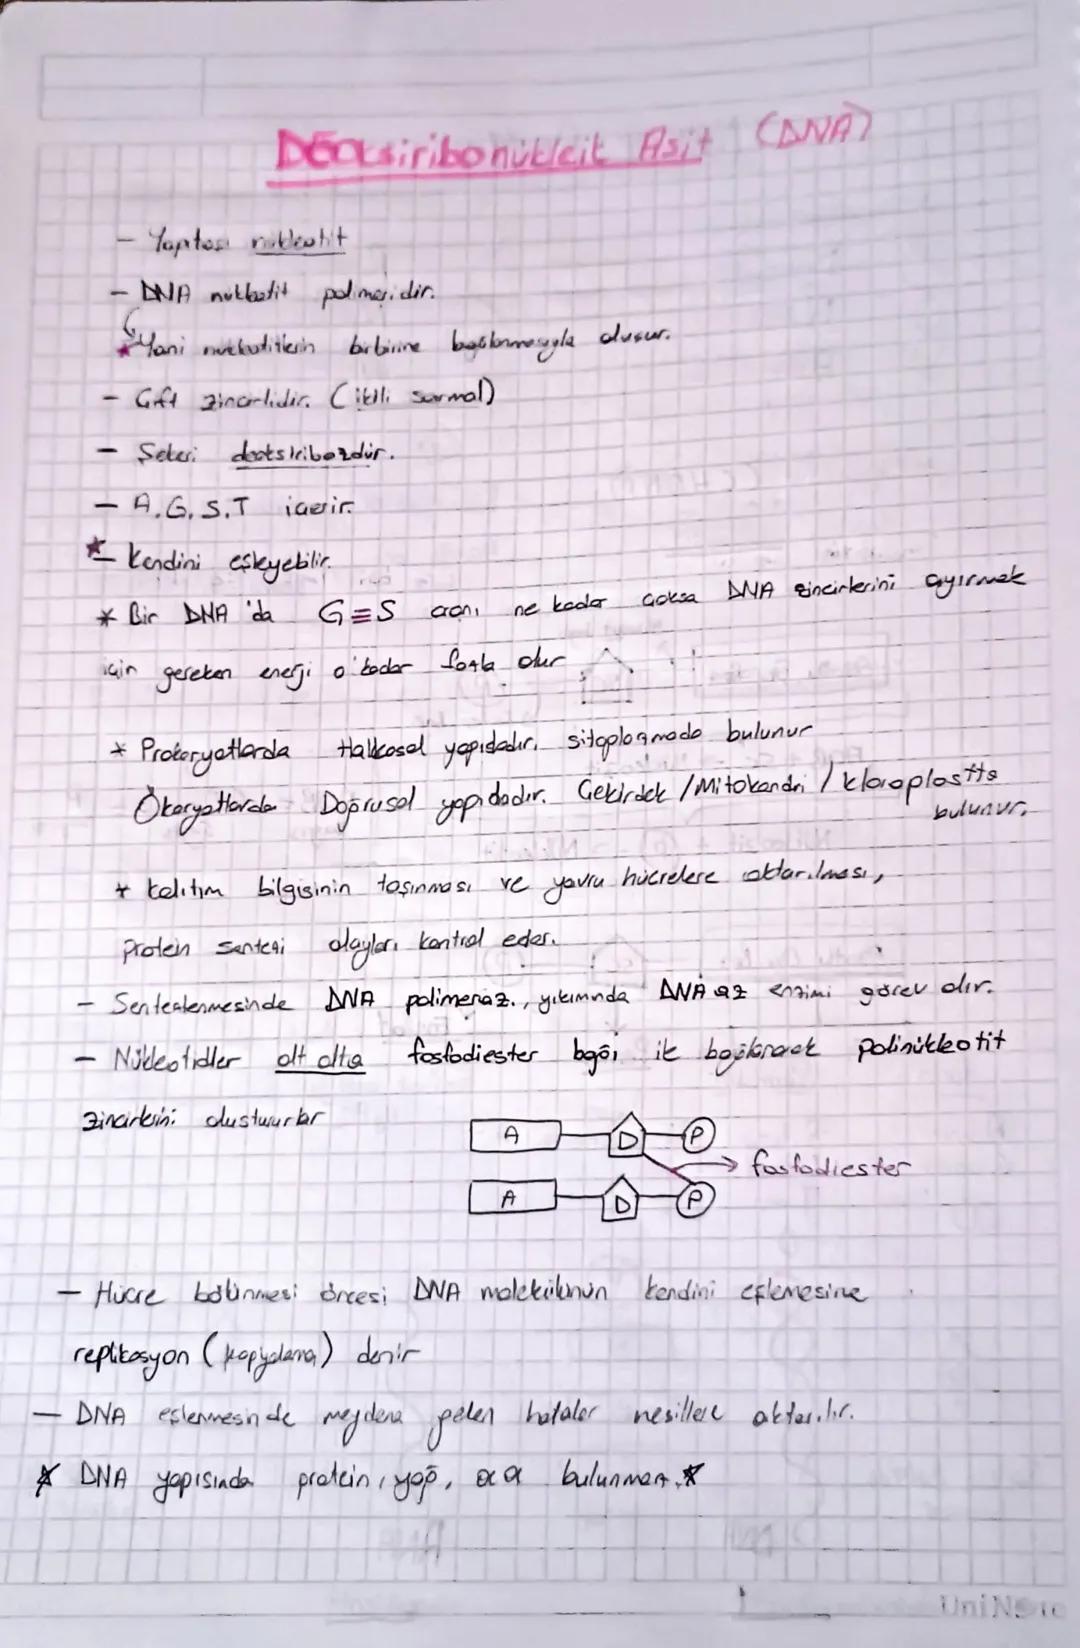 Deoksiribonükleik Asit (DNA)
- Yapıtaşı nükleotit
- DNA nükleotit polimeridir.
★ Yani nükleotitlerin birbirine bağlanmasıyla oluşur.
- Çift zincirlidir. (ikili sarmal)
- Şekeri deoksiribozdur.
- A.G.S.T içerir.
★- Kendini eşleyebilir.
* Bir DNA'da G≡S oranı ne kadar çoksa DNA zincirlerini ayırmak
için gereken enerji o kadar fazla olur
* Prokaryotlarda Halkasal yapıdadır, sitoplazmada bulunur
Ökaryotlarda Doğrusal yapıdadır. Çekirdek / Mitokondri / kloroplastta
bulunur.
* Kalıtım bilgisinin taşınması ve yavru hücrelere aktarılması,
protein sentezi olayları kontrol eder.
- Sentezlenmesinde DNA polimeraz., yıkımında DNAaz enzimi görev alır.
- Nükleotidler alt alta fosfodiester bağı ile bağlanarak polinükleotit
zincirlerini oluştururlar
A D P
fosfodiester
A D P
- Hücre bölünmesi öncesi DNA molekülünün kendini eşlemesine
replikasyon (kopyalama) denir
- DNA eşlenmesinde meydana gelen hatalar nesillere aktarılır.
★ DNA yapısında protein, yağ, aa bulunmaz.★
UniNote